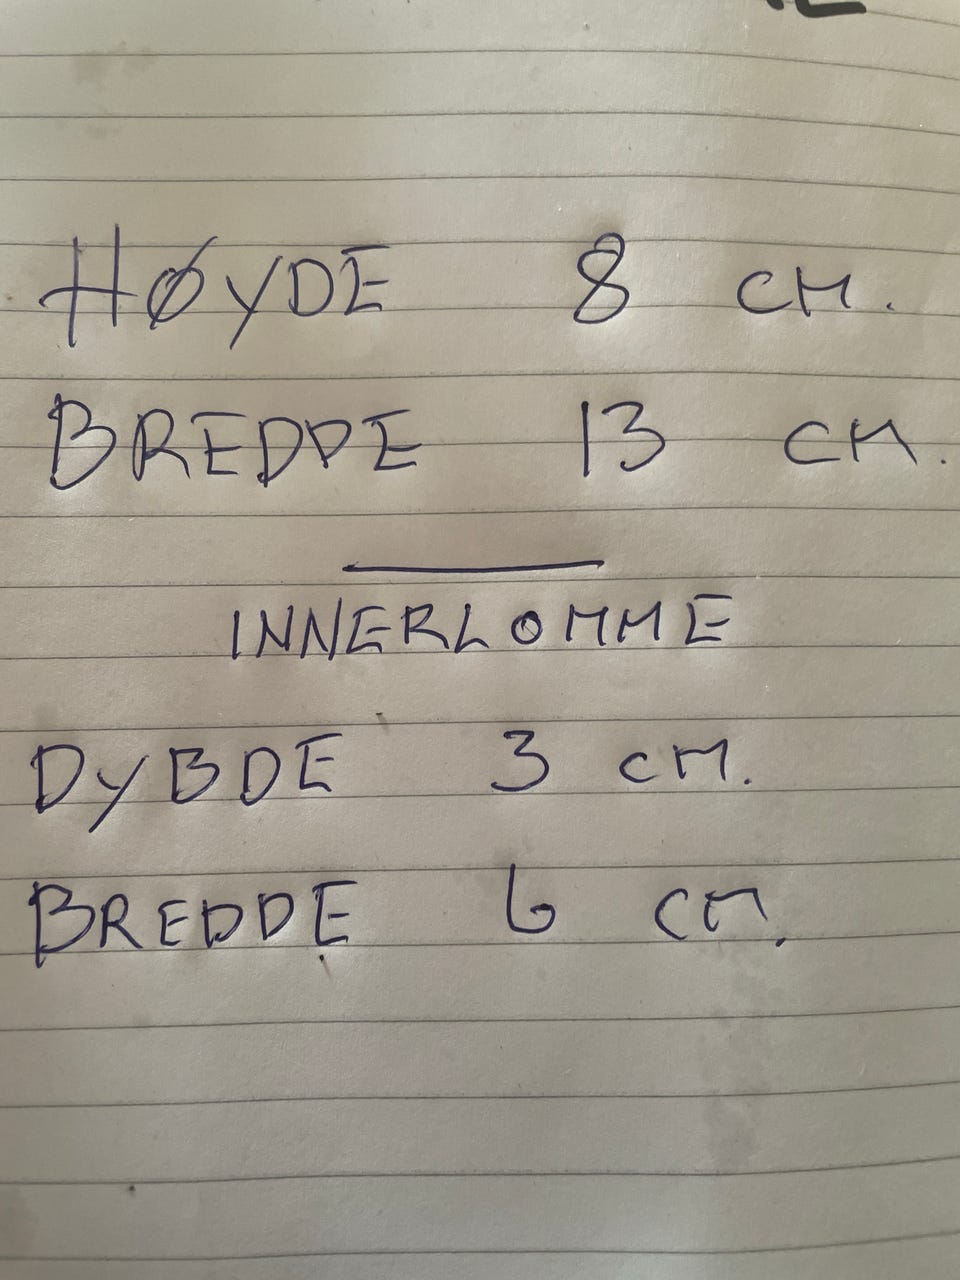 HØYDE 8 CM.
BREDDE 13 CM.
INNERLOMME
DYBDE 3 CM.
BREDDE 6 CM.